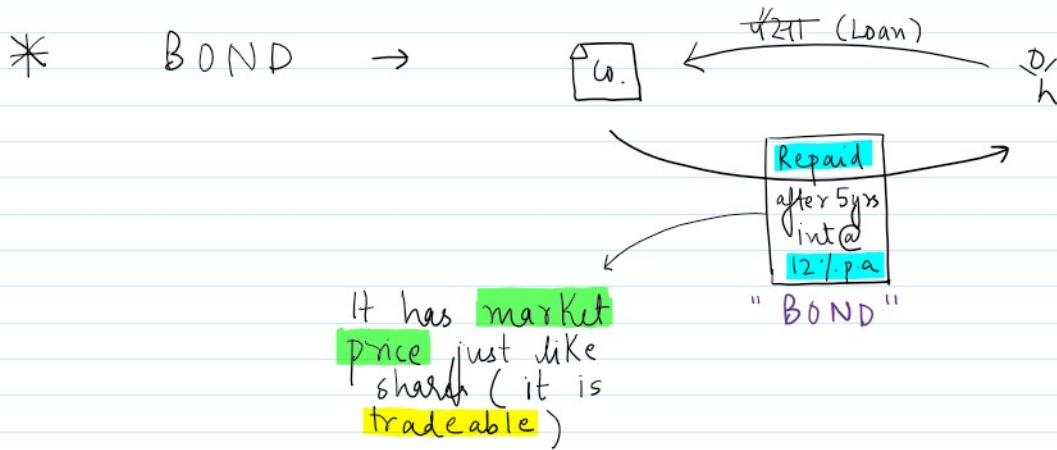 * BOND → Co.
(Loan)
Repaid
after 5yrs
int@
12%.p.a
"BOND"
It has market
price just like
share (it is
tradeable)